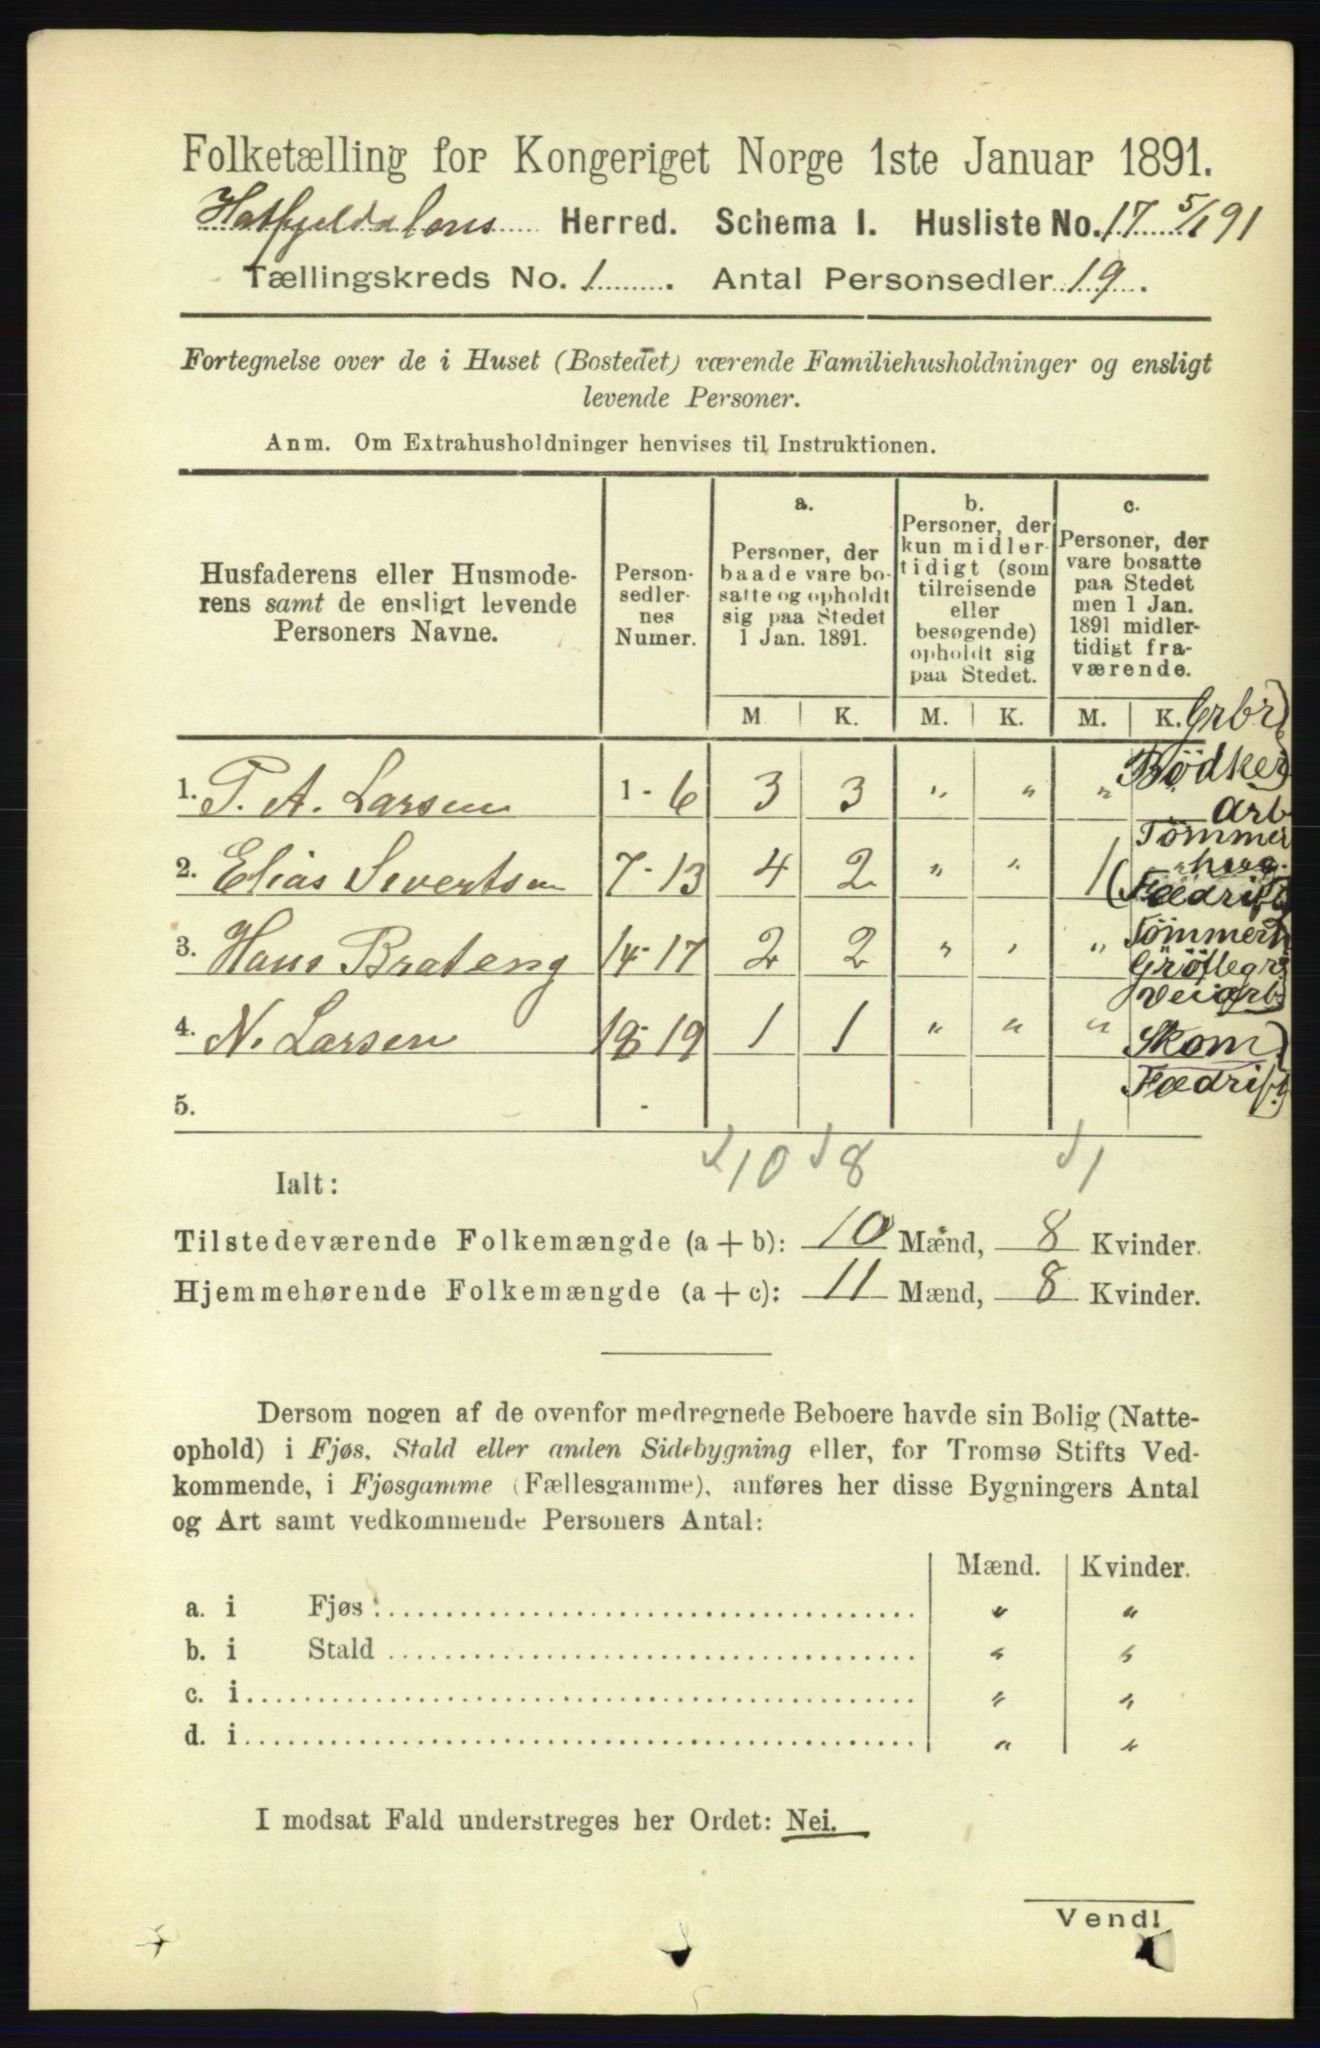 Folketælling for Kongeriget Norge 1ste Januar 1891.
Hatfjeldalens Herred. Schema I. Husliste No. 17 5/1 91
Tællingskreds No. 1. Antal Personsedler 19.
Fortegnelse over de i Huset (Bostedet) værende Familiehusholdninger og ensligt
levende Personer.
Anm. Om Extrahusholdninger henvises til Instruktionen.
Husfaderens eller Husmode-
rens samt de ensligt levende
Personers Navne.
Person-
sedler-
nes
Numer.
a.
Personer, der
baade vare bo-
satte og opholdt
sig paa Stedet
1 Jan. 1891.
b.
Personer, der
kun midler-
tidigt (som
tilreisende
eller
besøgende)
opholdt sig
paa Stedet.
c.
Personer, der
vare bosatte
paa Stedet
men 1 Jan.
1891 midler-
tidigt fra-
værende.
M. K. M. K. M. K. Grbr
1. T. A. Larsen 1-6 3 3 " " " Bödker
Arb
2. Elias Sivertsen 7-13 4 2 " " 1 Tömmer
Fædrift
3. Hans Brateng 14-17 2 2 " " " Tömmerh
Gröftegr
Veiarb
4. N. Larsen 18-19 1 1 " " " Skom
5. - Fædrift
10 8 1
Ialt:
Tilstedeværende Folkemængde (a + b): 10 Mænd, 8 Kvinder.
Hjemmehørende Folkemængde (a + c): 11 Mænd, 8 Kvinder.
Dersom nogen af de ovenfor medregnede Beboere havde sin Bolig (Natte-
ophold) i Fjøs, Stald eller anden Sidebygning eller, for Tromsø Stifts Ved-
kommende, i Fjøsgamme (Fællesgamme), anføres her disse Bygningers Antal
og Art samt vedkommende Personers Antal:
Mænd. Kvinder.
a. i Fjøs " "
b. i Stald " "
c. i " "
d. i " "
I modsat Fald understreges her Ordet: Nei.
Vend!